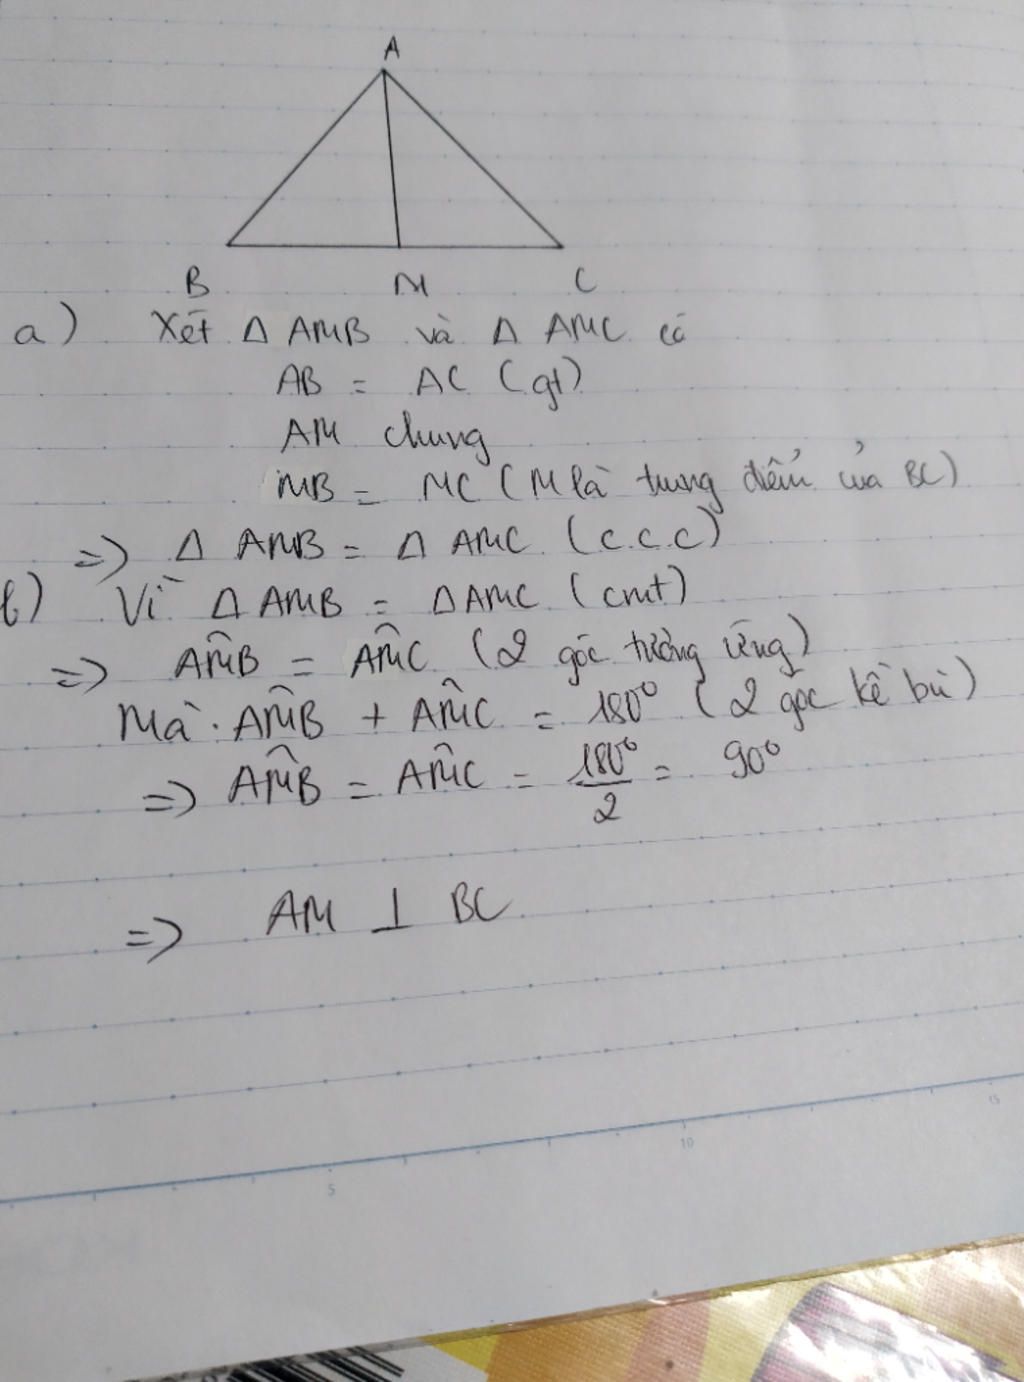 A
B M C
a) Xét Δ AMB và Δ AMC có
AB = AC (gt)
AM chung
MB = MC (M là trung điểm của BC)
=> Δ AMB = Δ AMC (c.c.c)
b) Vì Δ AMB = Δ AMC (cmt)
=> AM̂B = AM̂C (2 góc tương ứng)
Mà AM̂B + AM̂C = 180° (2 góc kề bù)
=> AM̂B = AM̂C = 180°/2 = 90°
=> AM ⊥ BC
5 10 15